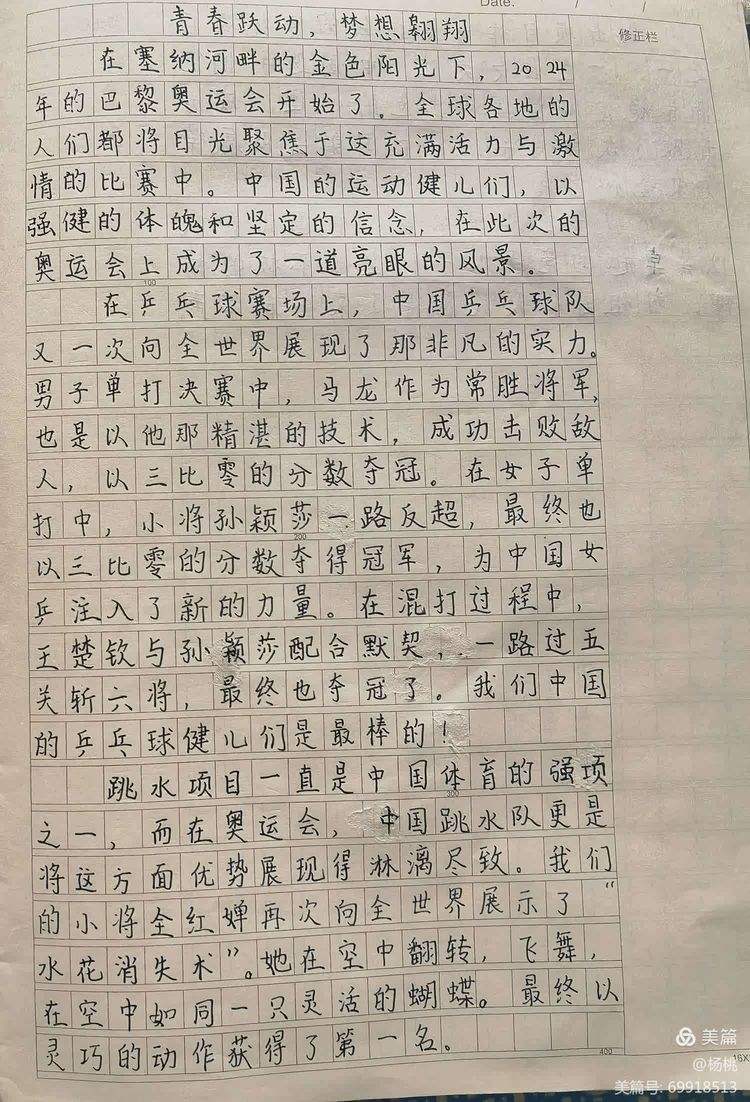 Date.
修正栏
青春跃动，梦想翱翔
在塞纳河畔的金色阳光下，2024
年的巴黎奥运会开始了。全球各地的
人们都将目光聚焦于这充满活力与激
情的比赛中。中国的运动健儿们，以
强健的体魄和坚定的信念，在此次的
奥运会上成为了一道亮眼的风景。
100
在乒乓球赛场上，中国乒乓球队
又一次向全世界展现了那非凡的实力。
男子单打决赛中，马龙作为常胜将军，
也是以他那精湛的技术，成功击败敌
人，以三比零的分数夺冠。在女子单
打中，小将孙颖莎一路反超，最终也
200
以三比零的分数夺得冠军，为中国女
乒注入了新的力量。在混打过程中，
王楚钦与孙颖莎配合默契，一路过五
关斩六将，最终也夺冠了。我们中国
的乒乓球健儿们是最棒的！
跳水项目一直是中国体育的强项
300
之一，而在奥运会，中国跳水队更是
将这方面优势展现得淋漓尽致。我们
的小将全红婵再次向全世界展示了“
水花消失术”。她在空中翻转，飞舞，
在空中如同一只灵活的蝴蝶。最终以
灵巧的动作获得了第一名。
400
16X
美篇
@杨桃
美篇号: 69918513